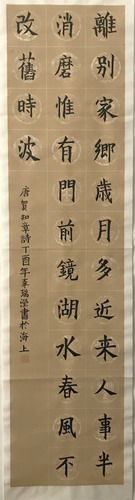 離別家鄉歲月多近来人事半
消磨惟有門前鏡湖水春風不
改舊時波
唐賀知章詩丁酉年季瑞瀅書於海上